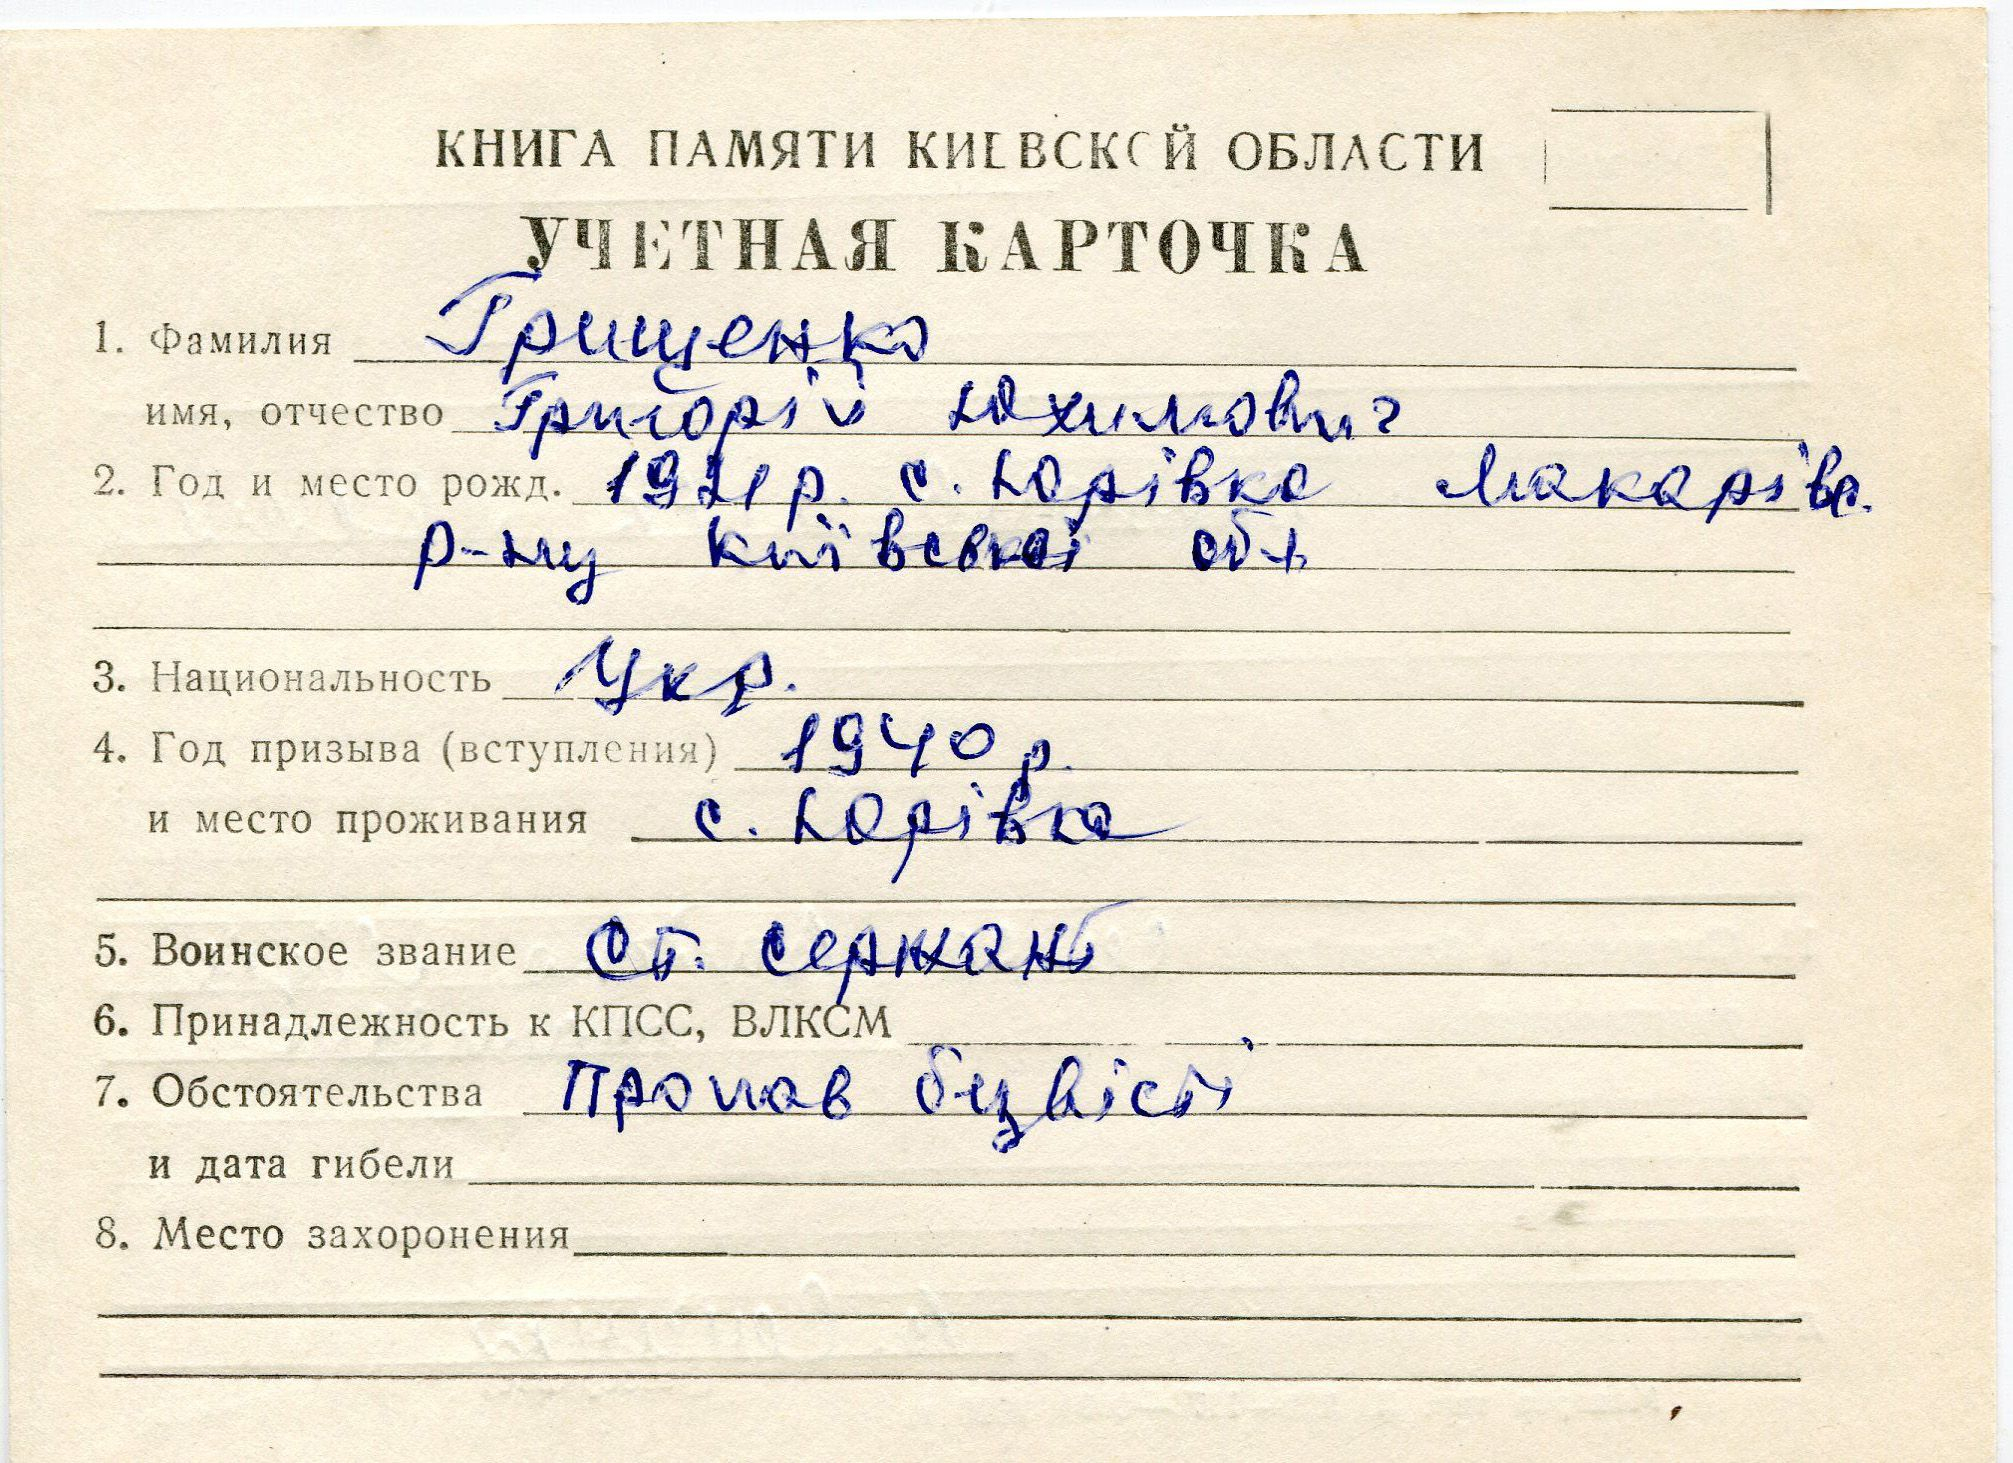 КНИГА ПАМЯТИ КИЕВСКОЙ ОБЛАСТИ
УЧЕТНАЯ КАРТОЧКА
1. Фамилия Грищенко
имя, отчество Григорій Юхимович
2. Год и место рожд. 1921 р. с. Юрівка Макарівс.
р-ну Київської обл.
3. Национальность Укр.
4. Год призыва (вступления) 1940 р.
и место проживания с. Юрівка
5. Воинское звание Ст. сержант
6. Принадлежность к КПСС, ВЛКСМ
7. Обстоятельства Пропав безвісти
и дата гибели
8. Место захоронения